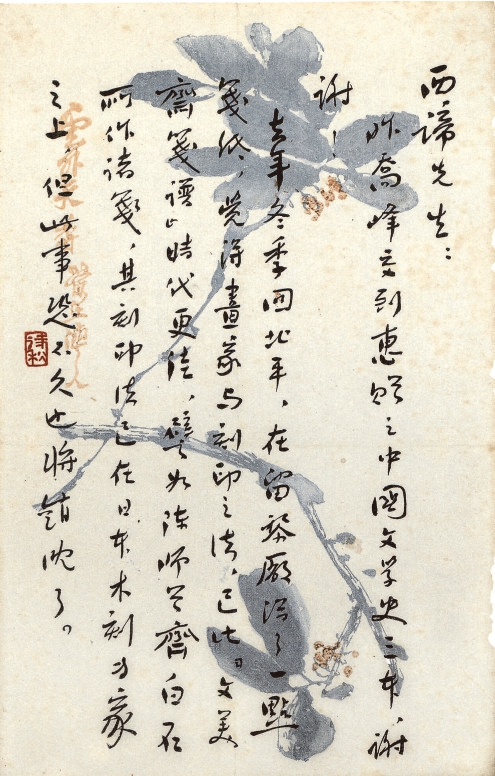 西諦先生：
昨喬峰交到惠贈之中國文学史三本，謝
謝！
去年冬季回北平，在留黎厰得了一點
箋紙，覺得畫家与刻印之法，已比《文美
齋箋譜》時代更佳，譬如陳師曾齊白石
所作諸箋，其刻印法已在日本木刻專家
之上，但此事恐不久也將銷沈了。